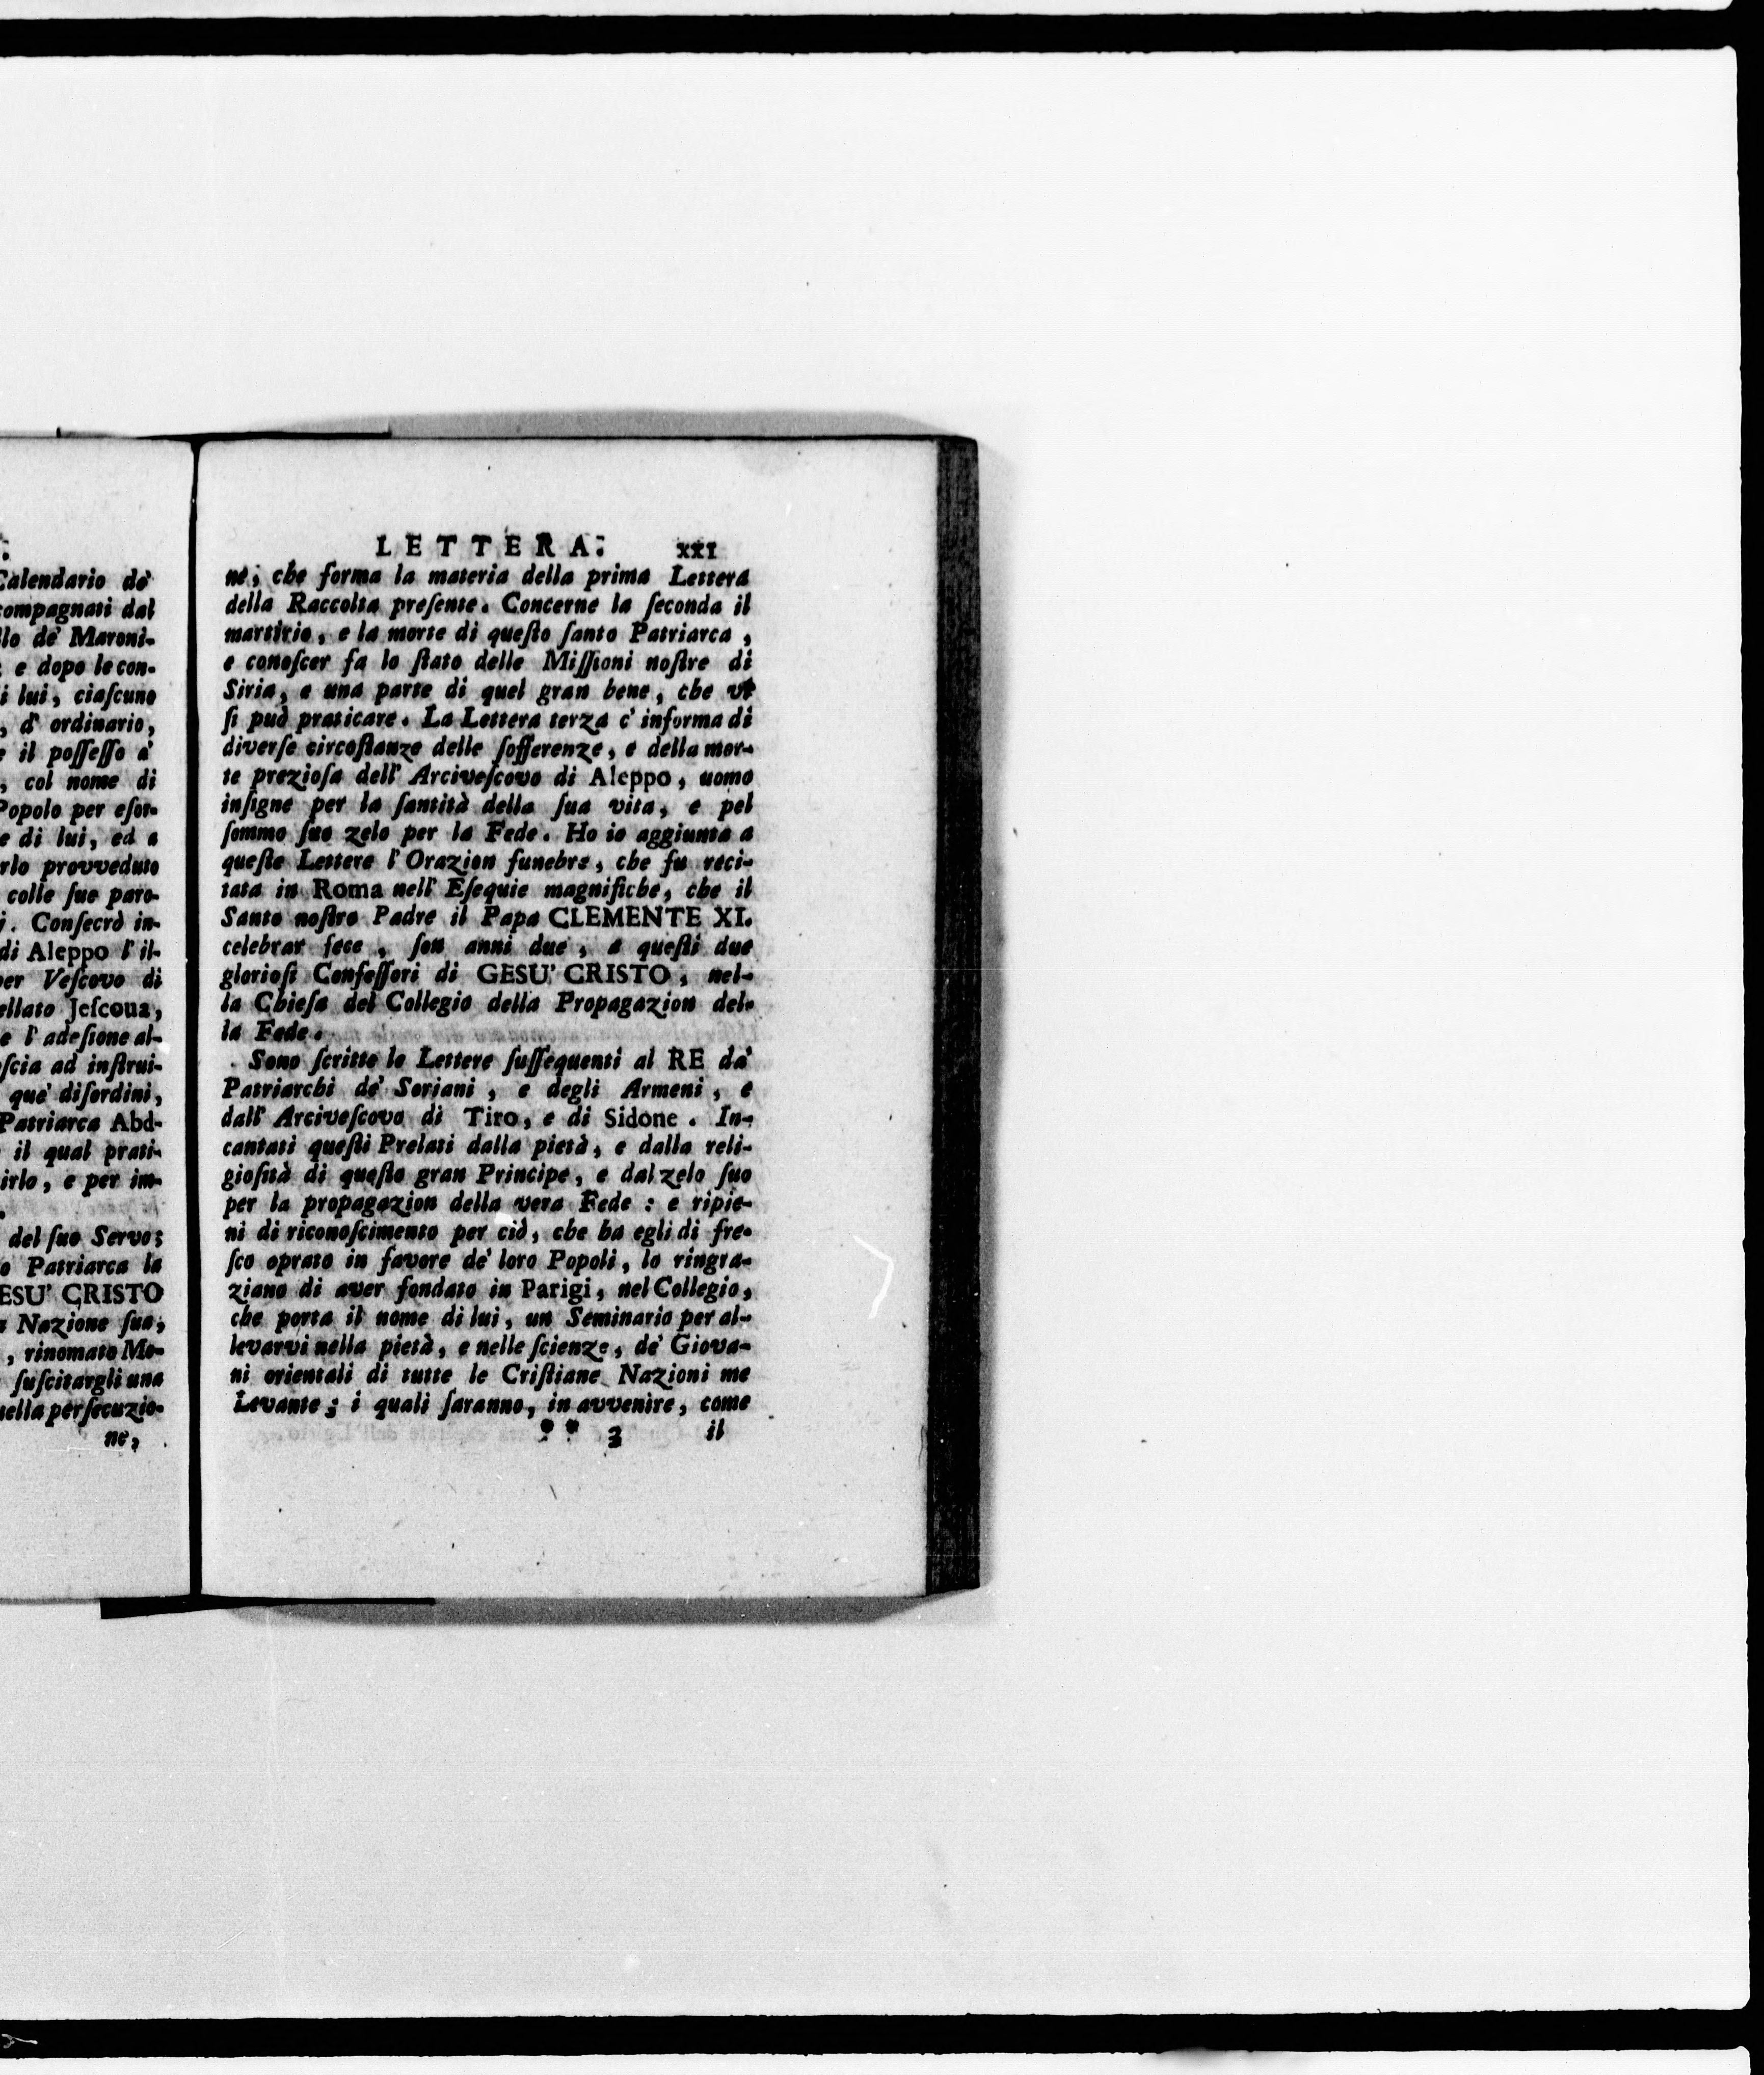 :
Calendario de'
compagnati dal
llo de' Maroni-
; e dopo le con-
i lui, ciaſcuno
, d' ordinario,
e il poſſeſſo a'
, col nome di
Popolo per eſor-
e di lui, ed a
rlo provveduto
colle ſue paro-
j. Conſecrò in-
di Aleppo l' il-
per Veſcovo di
ellato Jeſcoua,
e l' adeſione al-
oſcia ad inſtrui-
que' diſordini,
Patriarca Abd-
il qual prati-
irlo, e per im-
.
del ſuo Servo;
o Patriarca la
ESU' CRISTO
Nazione ſua,
, rinomato Mo-
ſuſcitargli una
uella perſecuzio-
ne,
LETTERA. xxi
ne, che forma la materia della prima Lettera
della Raccolta preſente. Concerne la ſeconda il
martirio, e la morte di queſto ſanto Patriarca,
e conoſcer fa lo ſtato delle Miſſioni noſtre di
Siria, e una parte di quel gran bene, che vi
ſi può praticare. La Lettera terza c' informa di
diverſe circoſtanze delle ſofferenze, e della mor-
te prezioſa dell' Arciveſcovo di Aleppo, uomo
inſigne per la ſantità della ſua vita, e pel
ſommo ſuo zelo per la Fede. Ho io aggiunta a
queſte Lettere l' Orazion funebre, che fu reci-
tata in Roma nell' Eſequie magnifiche, che il
Santo noſtro Padre il Papa CLEMENTE XI.
celebrar fece, ſon anni due, a queſti due
glorioſi Confeſſori di GESU' CRISTO, nel-
la Chieſa del Collegio della Propagazion del-
la Fede.
Sono ſcritte le Lettere ſuſſequenti al RE da'
Patriarchi de' Soriani, e degli Armeni, e
dall' Arciveſcovo di Tiro, e di Sidone. In-
cantati queſti Prelati dalla pietà, e dalla reli-
gioſità di queſto gran Principe, e dal zelo ſuo
per la propagazion della vera Fede : e ripie-
ni di riconoſcimento per ciò, che ha egli di fre-
ſco oprato in favore de' loro Popoli, lo ringra-
ziano di aver fondato in Parigi, nel Collegio,
che porta il nome di lui, un Seminario per al-
levarvi nella pietà, e nelle ſcienze, de' Giova-
ni orientali di tutte le Criſtiane Nazioni me
Levante; i quali ſaranno, in avvenire, come
** 3 il